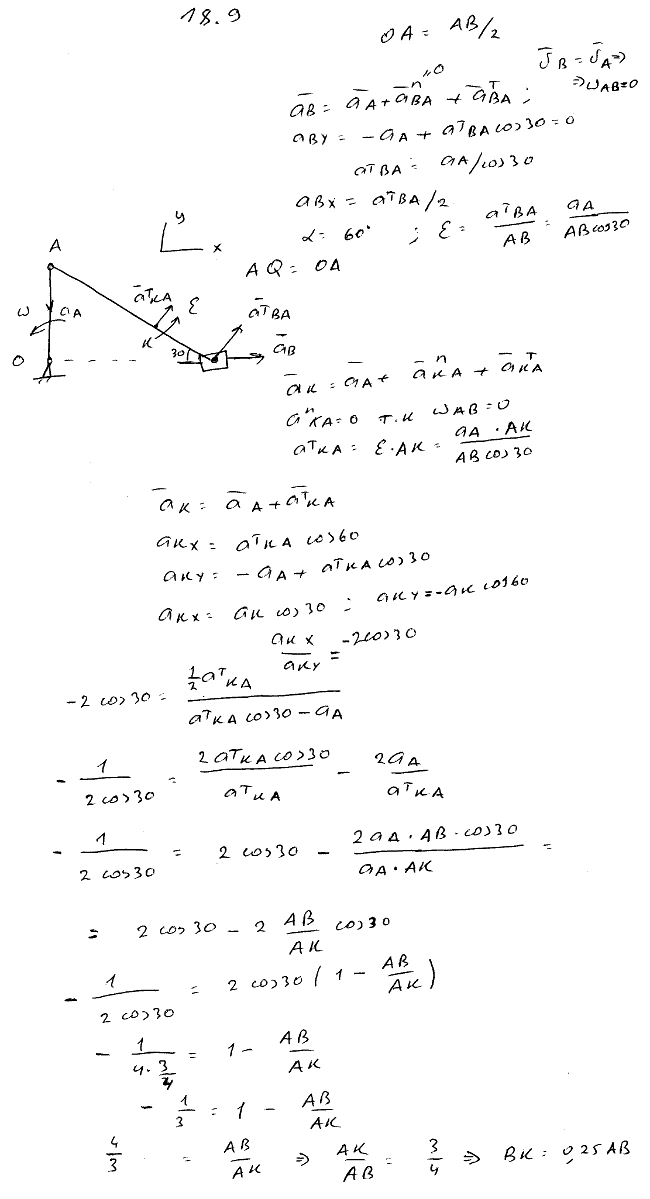 18.9
OA = AB/2
v̄B = v̄A ⇒
⇒ ωAB=0
āB = āA + āⁿBA"0 + āᵀBA ;
aBY = -aA + aᵀBA cos30 = 0
aᵀBA = aA/cos30
aBx = aᵀBA/2
α = 60° ; ε = aᵀBA/AB = aA/(AB cos30)
AQ = OA
y
x
A
āᵀKA
ε
ω
aA
K
āᵀBA
30
āB
O
āK = āA + āⁿKA + āᵀKA
aⁿKA=0 т.к ωAB=0
aᵀKA = ε·AK = (aA · AK)/(AB cos30)
āK = āA + āᵀKA
aKx = aᵀKA cos60
aKY = -aA + aᵀKA cos30
aKx = aK cos30 ; aKY = -aK cos60
aKx/aKY = -2cos30
-2 cos30 = (½aᵀKA)/(aᵀKA cos30 - aA)
- 1/(2cos30) = (2aᵀKA cos30)/aᵀKA - 2aA/aᵀKA
- 1/(2 cos30) = 2 cos30 - (2aA · AB · cos30)/(aA · AK) =
= 2 cos30 - 2 AB/AK cos30
- 1/(2 cos30) = 2 cos30 (1 - AB/AK)
- 1/(4·3/4) = 1 - AB/AK
- 1/3 = 1 - AB/AK
4/3 = AB/AK ⇒ AK/AB = 3/4 ⇒ BK = 0,25 AB